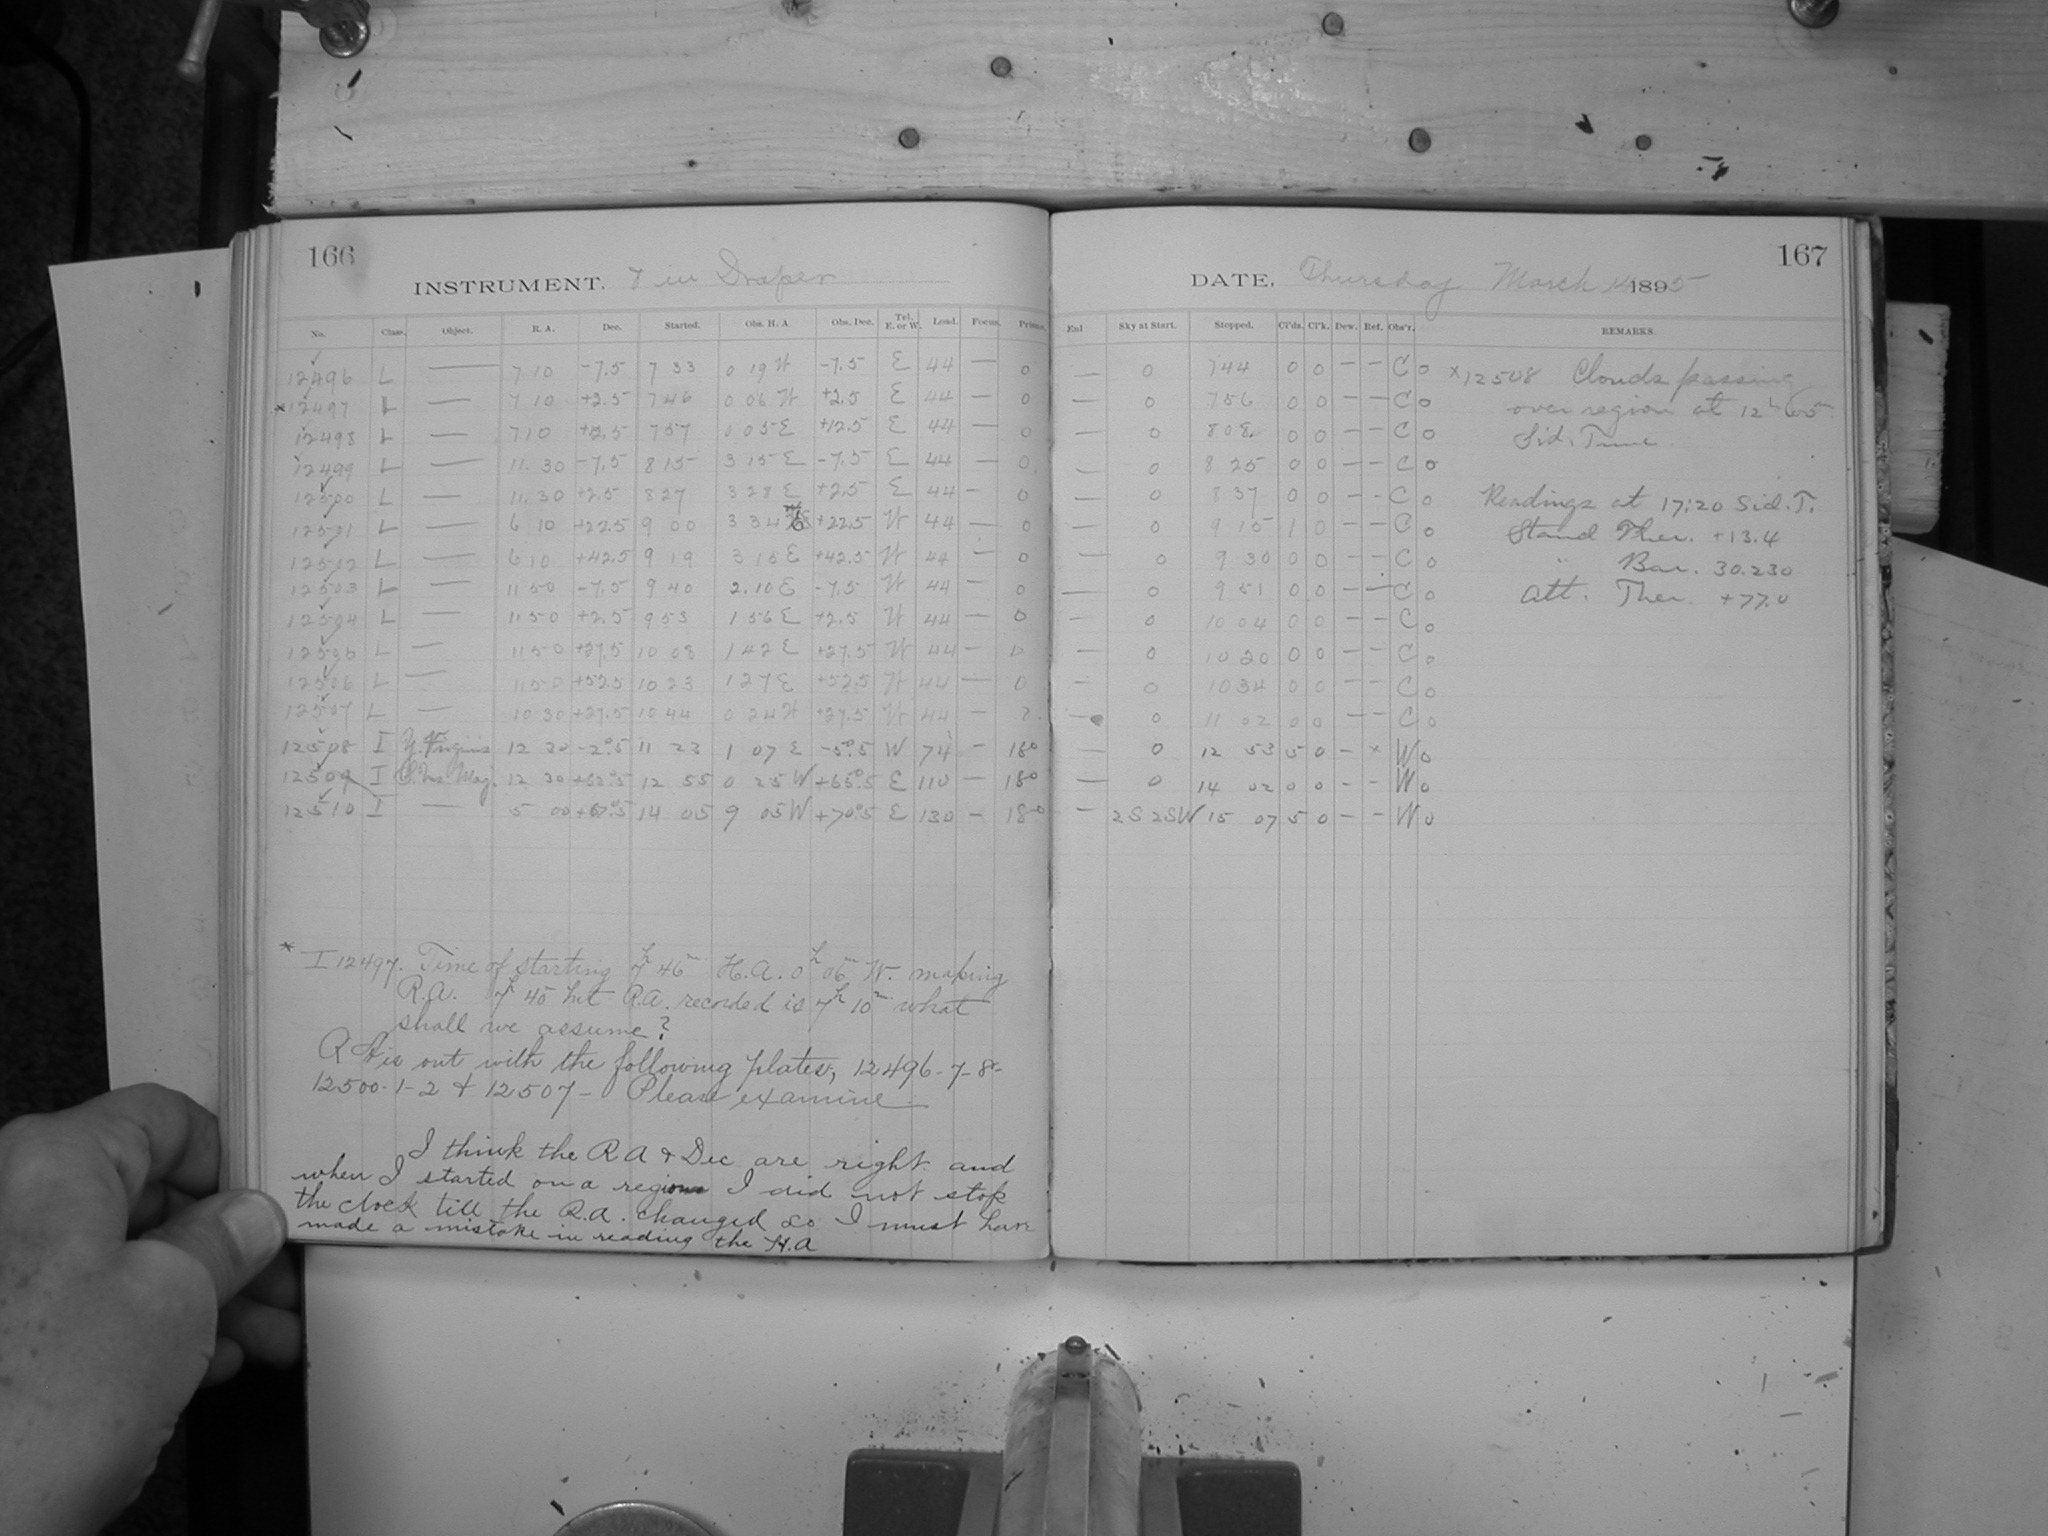 166
INSTRUMENT. 8 in Draper
No. Class. Object. R. A. Dec. Started. Obs. H. A. Obs. Dec. Tel. E. or W. Load. Focus. Prism.
12496 L — 7 10 -7.5 7 33 0 19 W -7.5 E 44 — 0
*12497 L — 7 10 +2.5 7 46 0 06 W +2.5 E 44 — 0
12498 L — 7 10 +12.5 7 57 0 05 E +12.5 E 44 — 0
12499 L — 11. 30 -7.5 8 15 3 15 E -7.5 E 44 — 0
12500 L — 11. 30 +2.5 8 27 3 28 E +2.5 E 44 — 0
12501 L — 6 10 +22.5 9 00 3 34 +22.5 W 44 — 0
12502 L — 6 10 +42.5 9 19 3 15 E +42.5 W 44 — 0
12503 L — 11 50 -7.5 9 40 2. 10 E -7.5 W 44 — 0
12504 L — 11 50 +2.5 9 53 1 56 E +2.5 W 44 — 0
12505 L — 11 50 +27.5 10 08 1 42 E +27.5 W 44 — 0
12506 L — 11 50 +52.5 10 23 1 27 E +52.5 W 44 — 0
12507 L — 10 30 +27.5 10 44 0 24 W +27.5 W 44 —
12508 I Y. Virginis 12 30 -2°.5 11 23 1 07 E -5°.5 W 74 — 180
12509 I Urs Maj. 12 30 +62°.5 12 55 0 25 W +65°.5 E 110 — 180
12510 I — 5 00 +67°.5 14 05 9 05 W +70°.5 E 130 — 180
* I 12497. Time of starting 7h 46m H.A. 0h 06m W. making
R.A. 7h 40 but R.A. recorded is 7h 10m what
shall we assume?
R A is out with the following plates, 12496-7-8-
12500-1-2 & 12507 — Please examine
I think the R A & Dec are right and
when I started on a region I did not stop
the clock till the R.A. changed so I must have
made a mistake in reading the H.A
167
DATE. Thursday March 14 1895
End Sky at Start. Stopped. Cl'ds. Cl'k. Dew. Ref. Obs'r. REMARKS.
— 0 7 44 0 0 — — C 0
— 0 7 56 0 0 — — C 0
— 0 8 08 0 0 — — C 0
— 0 8 25 0 0 — — C 0
— 0 8 37 0 0 — — C 0
— 0 9 15 1 0 — — C 0
— 0 9 30 0 0 — — C 0
— 0 9 51 0 0 — — C 0
— 0 10 04 0 0 — — C 0
— 0 10 20 0 0 — — C 0
— 0 10 34 0 0 — — C 0
— 0 11 02 0 0 — — C 0
— 0 12 53 5 0 — x W 0
— 0 14 02 0 0 — — W 0
— 2S 2SW 15 07 5 0 — — W 0
x12508 Clouds passing
over region at 12h
Sid. Time
Readings at 17:20 Sid. T.
Stand Ther. +13.4
" Bar. 30.230
Att. Ther. +77.0